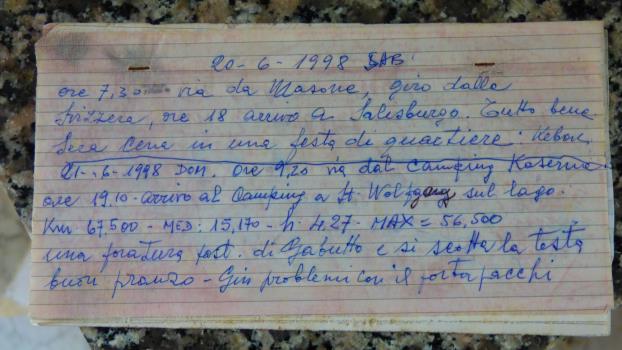 20-6-1998 SAB
ore 7,30 via da Masone, giro dalla
Svizzera, ore 18 arrivo a Salisburgo. Tutto bene
Sera cena in una festa di quartiere.
21-6-1998 DOM. ore 9,20 via dal camping Kaserna
ore 19.10 arrivo al Camping a St Wolfgang sul lago.
Km 67,500 - MED: 15,170 - h. 4.27 - MAX = 56,500
una foratura post. di Gabutto e si scotta la testa
buon pranzo - Gin problemi con il portapacchi